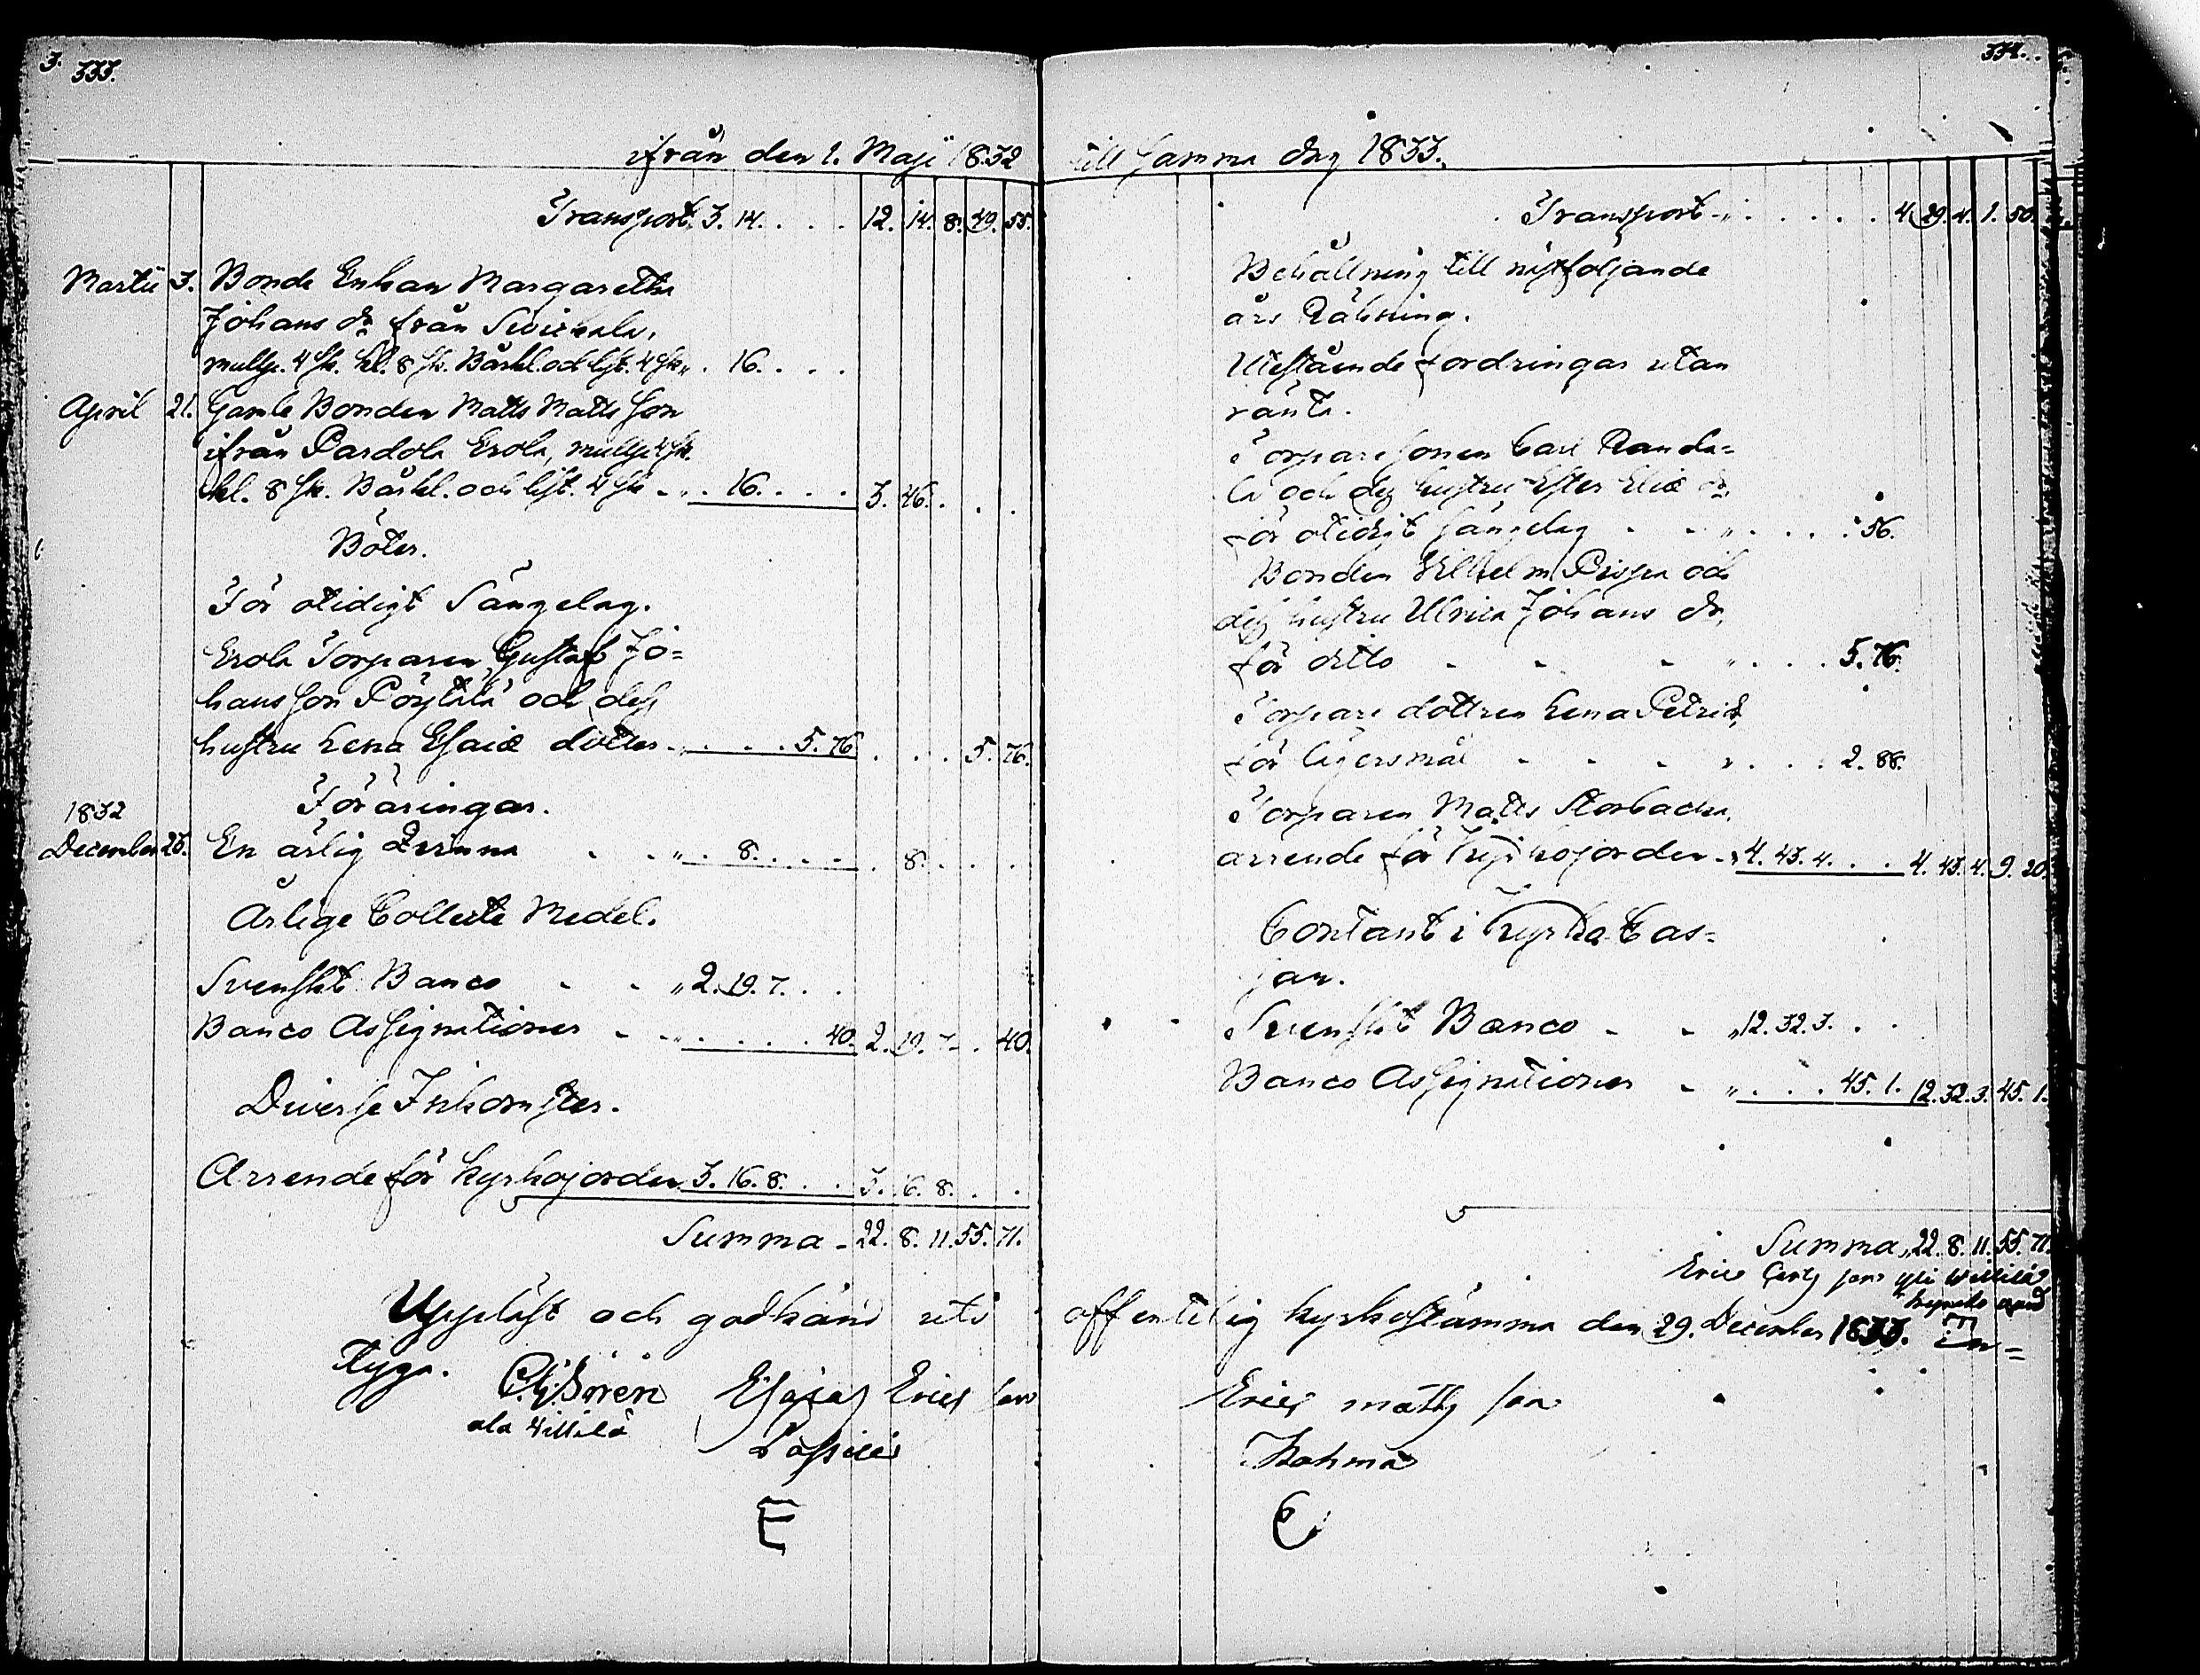 3. 333.
ifrån den 1. Maji 1832
Transport. 3. 14. . . . 12. 14. 8. 49. 55.
Martii 3. Bonde Enkan Margaretha
Johans dr från
mullp. 4 sk. kl. 8 sk. Bårkl. och ljst. 4 sk " . 16. . . .
April 21. Gamle Bonden Matts Matts son
ifrån Pardola Erola, mullp. 4 sk.
kl. 8 sk. Bårkl. och ljst. 4 sk - " . 16. . . . 3. 46. . . .
Böter.
För otidigt Sängelag.
Erola Torparen Gustaf Jo=
hans son Pöytälä och dess
hustru Lena Esaiæ dotter - " . . . 5. 76. . . . 5. 76.
Föräringar.
1832
December 25. En ärlig Qvinna - - " . 8. . . . . 8. . . .
Årlige Collecte Medel.
Svenskt Banco - - " 2. 19. 7. . .
Banco Assignationer - - " . . . . 40. 2. 19. 7. . 40.
Diverse Inkomster.
Arrende för kyrkojorden 3. 16. 8. . . 3. 16. 8. . .
Summa - 22. 8. 11. 55. 71.
Uppläst och godkänd uti
Tyga.
Esajas Erics son
ala Villilä
E
334.
till samma dag 1833.
Transport - " . . . . . 4. 29. 4. 1. 50.
Behållning till nästföljande
års Räkning.
Utestående fordringar utan
ränta.
Torpare sonen Carl Randa=
la och dess hustru Ester Eliæ dr,
för otidigt sängelag - - " . . . . 56.
Bonden Vilhelm Pispa och
dess hustru Ulrica Johans dr,
för ditto - - - " . . . 5. 76.
Torpare dottren Lena Petri dr,
för lägersmål - - - " . . . 2. 88.
Torparen Matts Storbacka,
arrende för Kyrkojorden - " 4. 43. 4. . . 4. 43. 4. 9. 20.
Contant i Kyrka Cas=
san.
Svenskt Banco - - " 12. 32. 3. . .
Banco Assignationer - " . . . 45. 1. 12. 32. 3. 45. 1.
Summa, 22. 8. 11. 55. 71.
Eric son yli Villilä
offentelig kyrkostämma den 29. December 1833. In=
Eric matts son
E